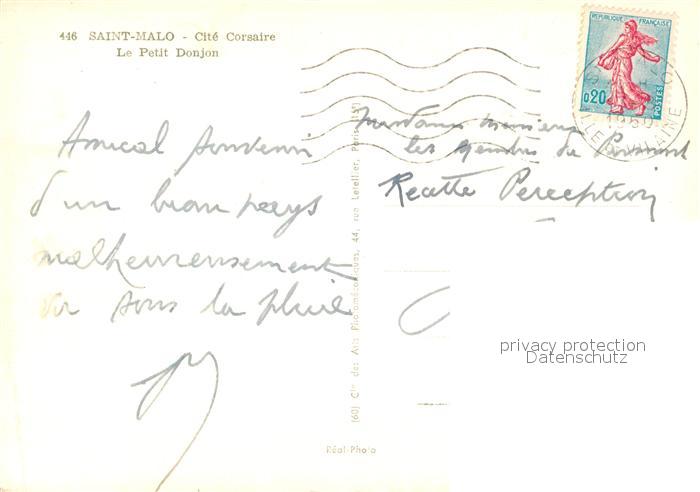 446 SAINT-MALO - Cité Corsaire
Le Petit Donjon
REPUBLIQUE FRANÇAISE
0,20
POSTES
1960
ILLE ET VILAINE
Amical souvenir
d'un beau pays
malheureusement
vu sous la pluie
Madame Messieurs
les membres du
Recette Perception
(60) Cie des Arts Photomécaniques, 44, rue Letellier, Paris (15e)
Réal-Photo
privacy protection
Datenschutz